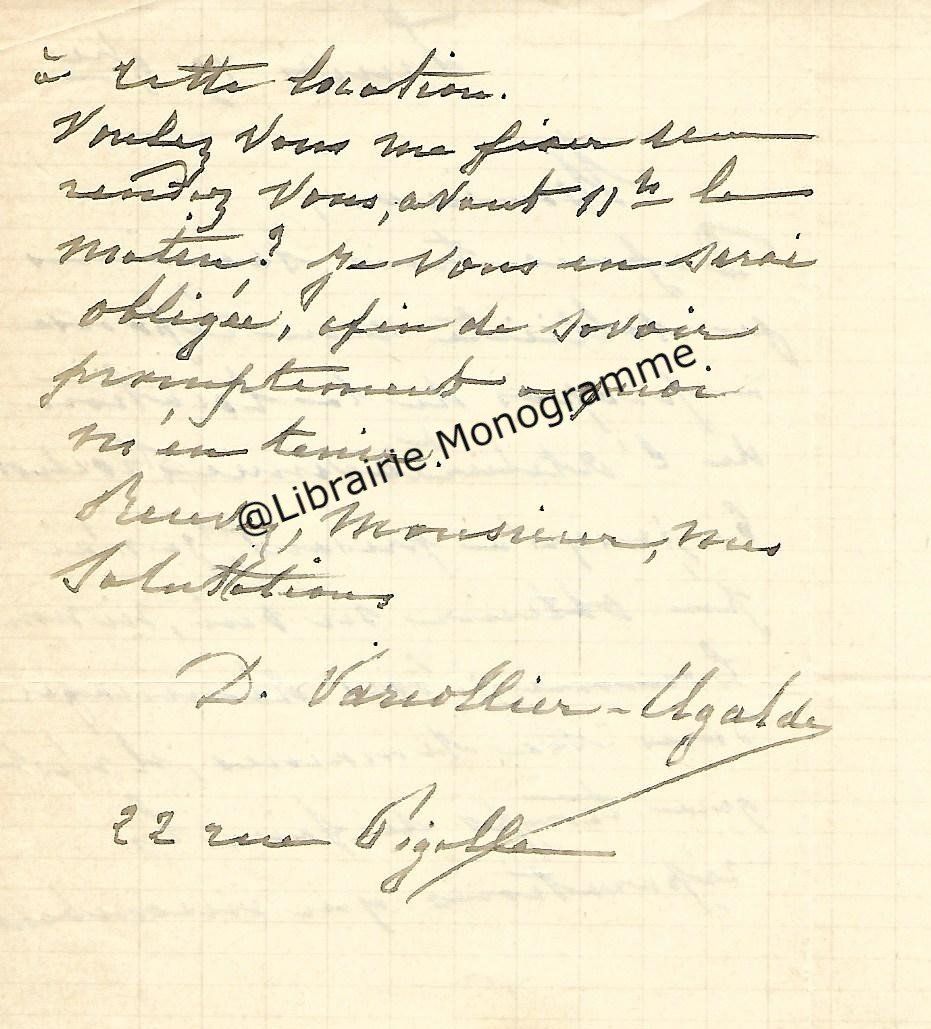 à cette location.
Voulez Vous me fixer un
rendez Vous, avant 11h le
matin? Je Vous en serai
obligée, afin de savoir
promptement à quoi
m'en tenir.
@Librairie.Monogramme.
Recevez, Monsieur, mes
Salutations
D. Varcollier-Ugalde
22 rue Pigalle